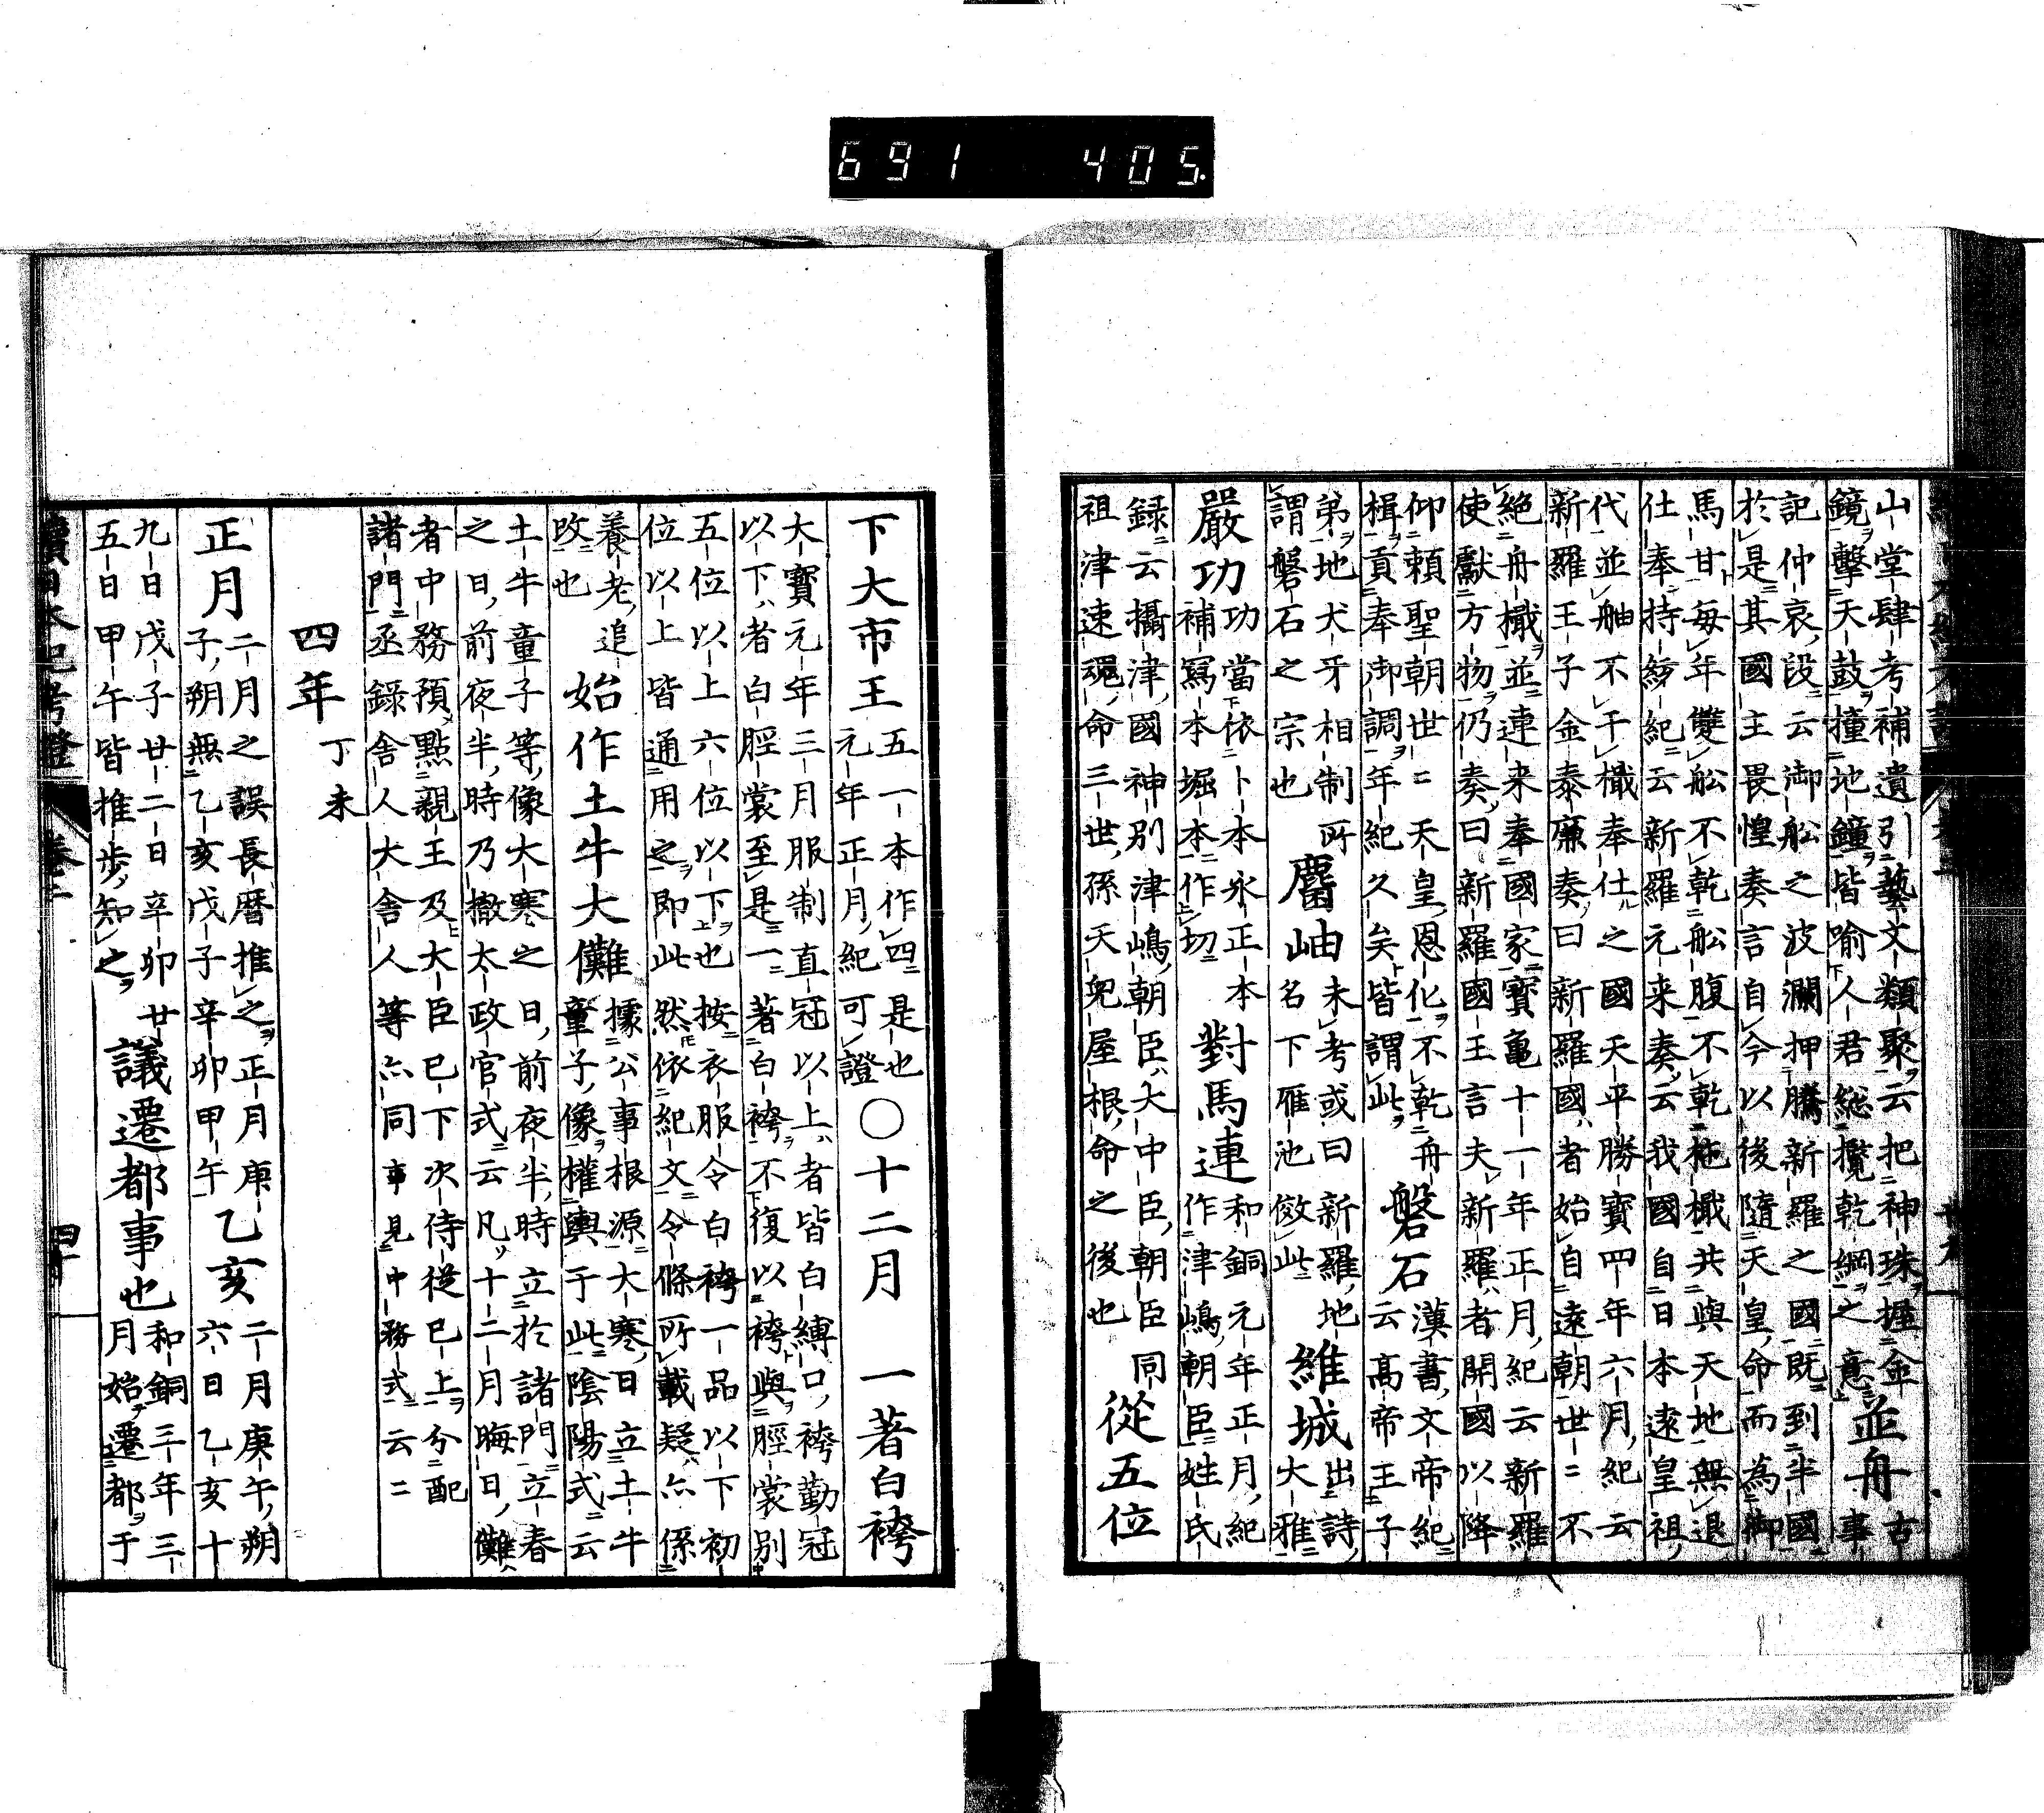 691 405
山堂肆考補遺引藝文類聚云把神珠握金
鏡擊天鼓撞地鐘皆喻人君總攬乾綱之意
並舟
古
事
記仲哀段云御舩之波瀾押騰新羅之國既到半國
於是其國主畏惶奏言自今以後隨天皇命而為御
馬甘每年雙舩不乾舩腹不乾柂檝共與天地無退
仕奉持紗紀云新羅元来奏云我國自日本遠皇祖
代並舳不干檝奉仕之國天平勝寶四年六月紀云
新羅王子金泰廉奏曰新羅國者始自遠朝世〻不
絶舟檝並連来奉國家寶亀十一年正月紀云新羅
使獻方物仍奏曰新羅國王言夫新羅者開國以降
仰頼聖朝世〻天皇恩化不乾舟
楫貢奉御調年紀久矣皆謂此
磐石
漢書文帝紀
云髙帝王子
弟地犬牙相制所
謂磐石之宗也
麕岫
未考或曰新羅地
名下雁池傚此
維城
出詩
大雅
嚴功
功當依卜本永正本
補寫本堀本作切
對馬連
和銅元年正月紀
作津嶋朝臣姓氏
録云攝津國神別津嶋朝臣大中臣朝臣同
祖津速魂命三世孫天兒屋根命之後也
從五位
下大市王
五一本作四是也
元年正月紀可證
○十二月
一著白袴
大寶元年三月服制直冠以上者皆白縛口袴勤冠
以下者白脛裳至是一著白袴不復以袴與脛裳別
五位以上六位以下也按衣服令白袴一品以下初
位以上皆通用之即此然依紀文令條所載疑亦係
養老追
改也
始作土牛大儺
據公事根源大寒日立土牛
童子像權輿于此陰陽式云
土牛童子等像大寒之日前夜半時立於諸門立春
之日前夜半時乃撤太政官式云凡十二月晦日儺
者中務預點親王及大臣已下次侍従已上分配
諸門丞錄舎人大舎人等亦同事見中務式云〻
四年
丁未
正月
二月之誤長暦推之正月庚
子朔無乙亥戊子辛卯甲午
乙亥
二月庚午朔
六日乙亥十
九日戊子廿二日辛卯廿
五日甲午皆推歩知之
議遷都事也
和銅三年三
月始遷都于
續日本紀考證
卷二
四十